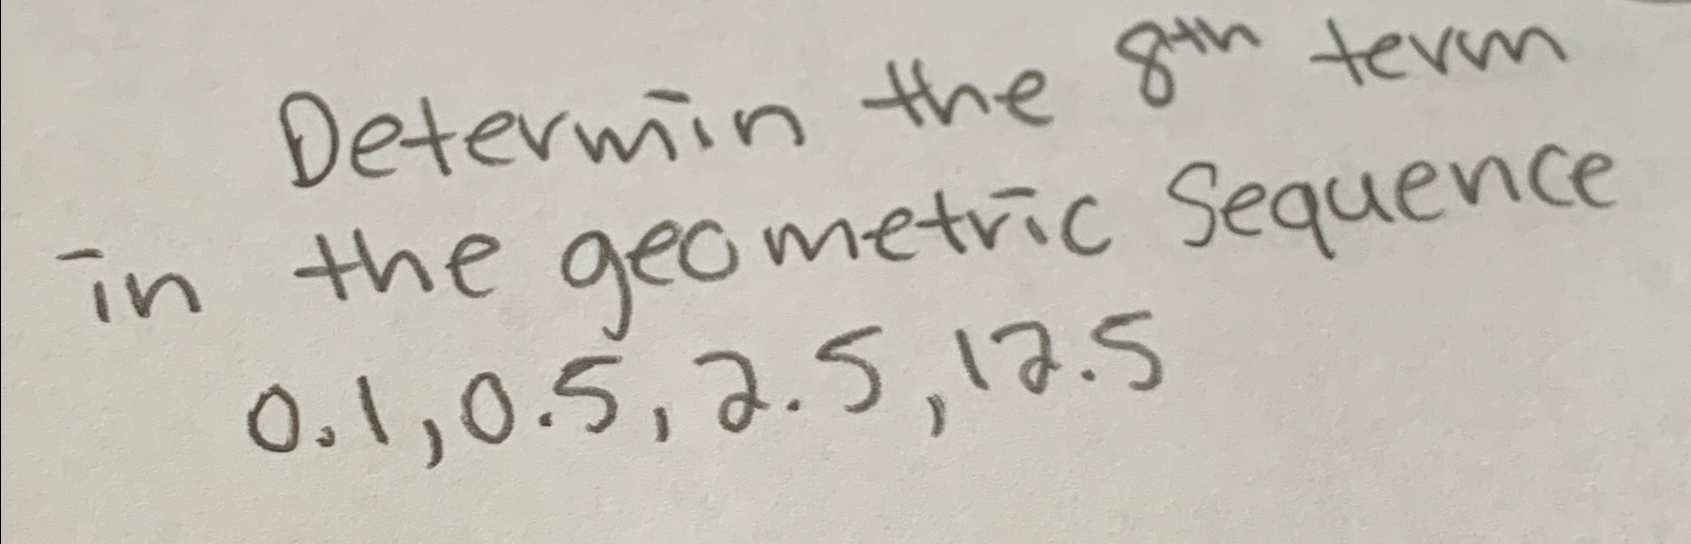 Determin the 8th term
in the geometric sequence
0.1, 0.5, 2.5, 12.5